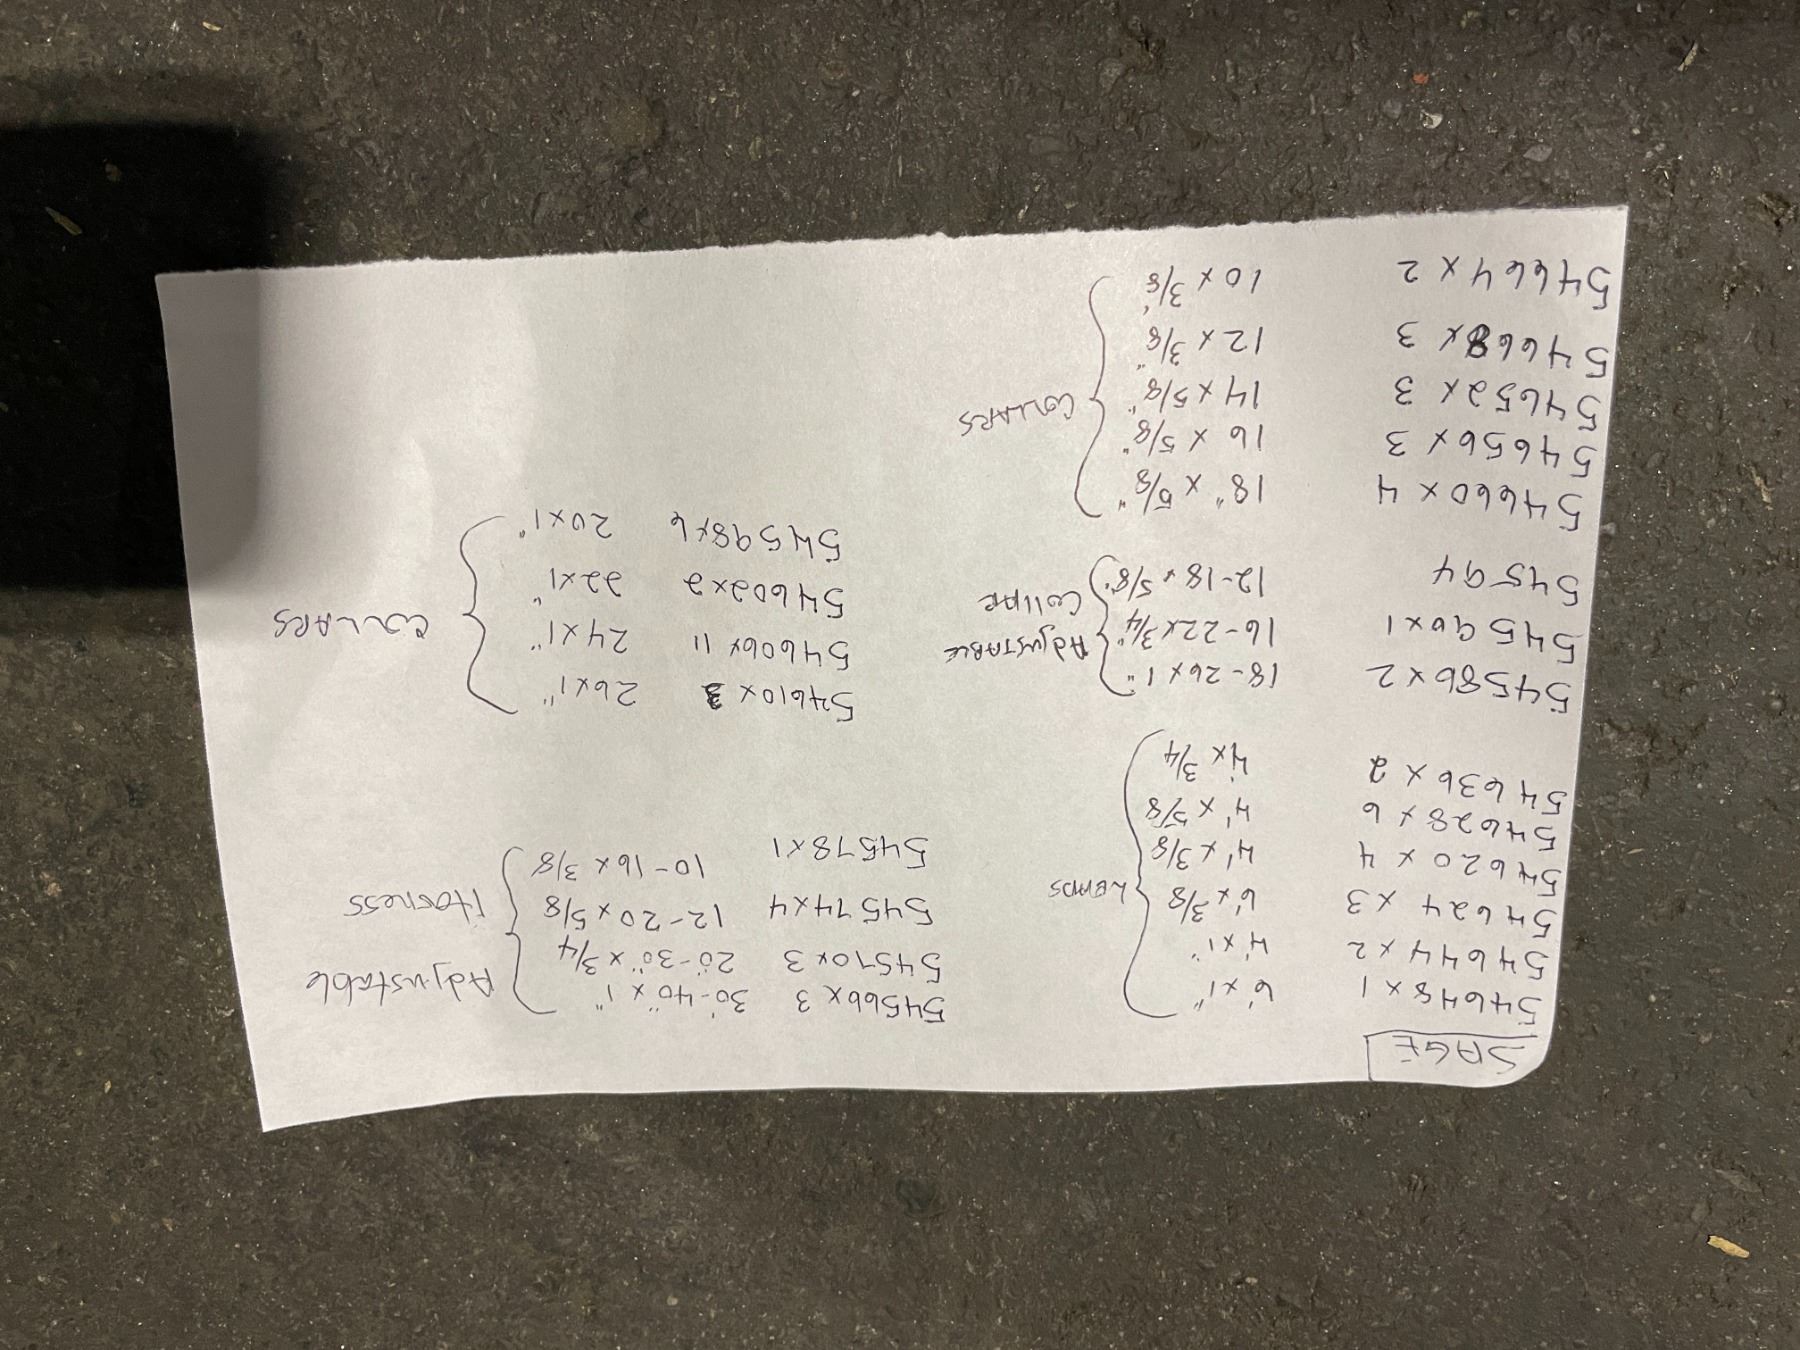 SAGE
54648 x 1 6' x 1"
54644 x 2 4' x 1"
54624 x 3 6' x 3/8
54620 x 4 4' x 3/8
54628 x 6 4' x 5/8
54636 x 2 4' x 3/4
Leads
54586 x 2 18-26 x 1"
54590 x 1 16-22 x 3/4"
54594 12-18 x 5/8"
ADjUSTABLE
Collar
54660 x 4 18" x 5/8"
54656 x 3 16 x 5/8"
54652 x 3 14 x 5/8"
54668 x 3 12 x 3/8"
54664 x 2 10 x 3/8"
COLLARS
54566 x 3 30"-40" x 1"
54570 x 3 20"-30" x 3/4
54574 x 4 12-20 x 5/8
54578 x 1 10-16 x 3/8
Adjustable
Harness
54610 x 3 26 x 1"
54606 x 11 24 x 1"
54602 x 2 22 x 1"
54598 x 6 20 x 1"
COLLARS